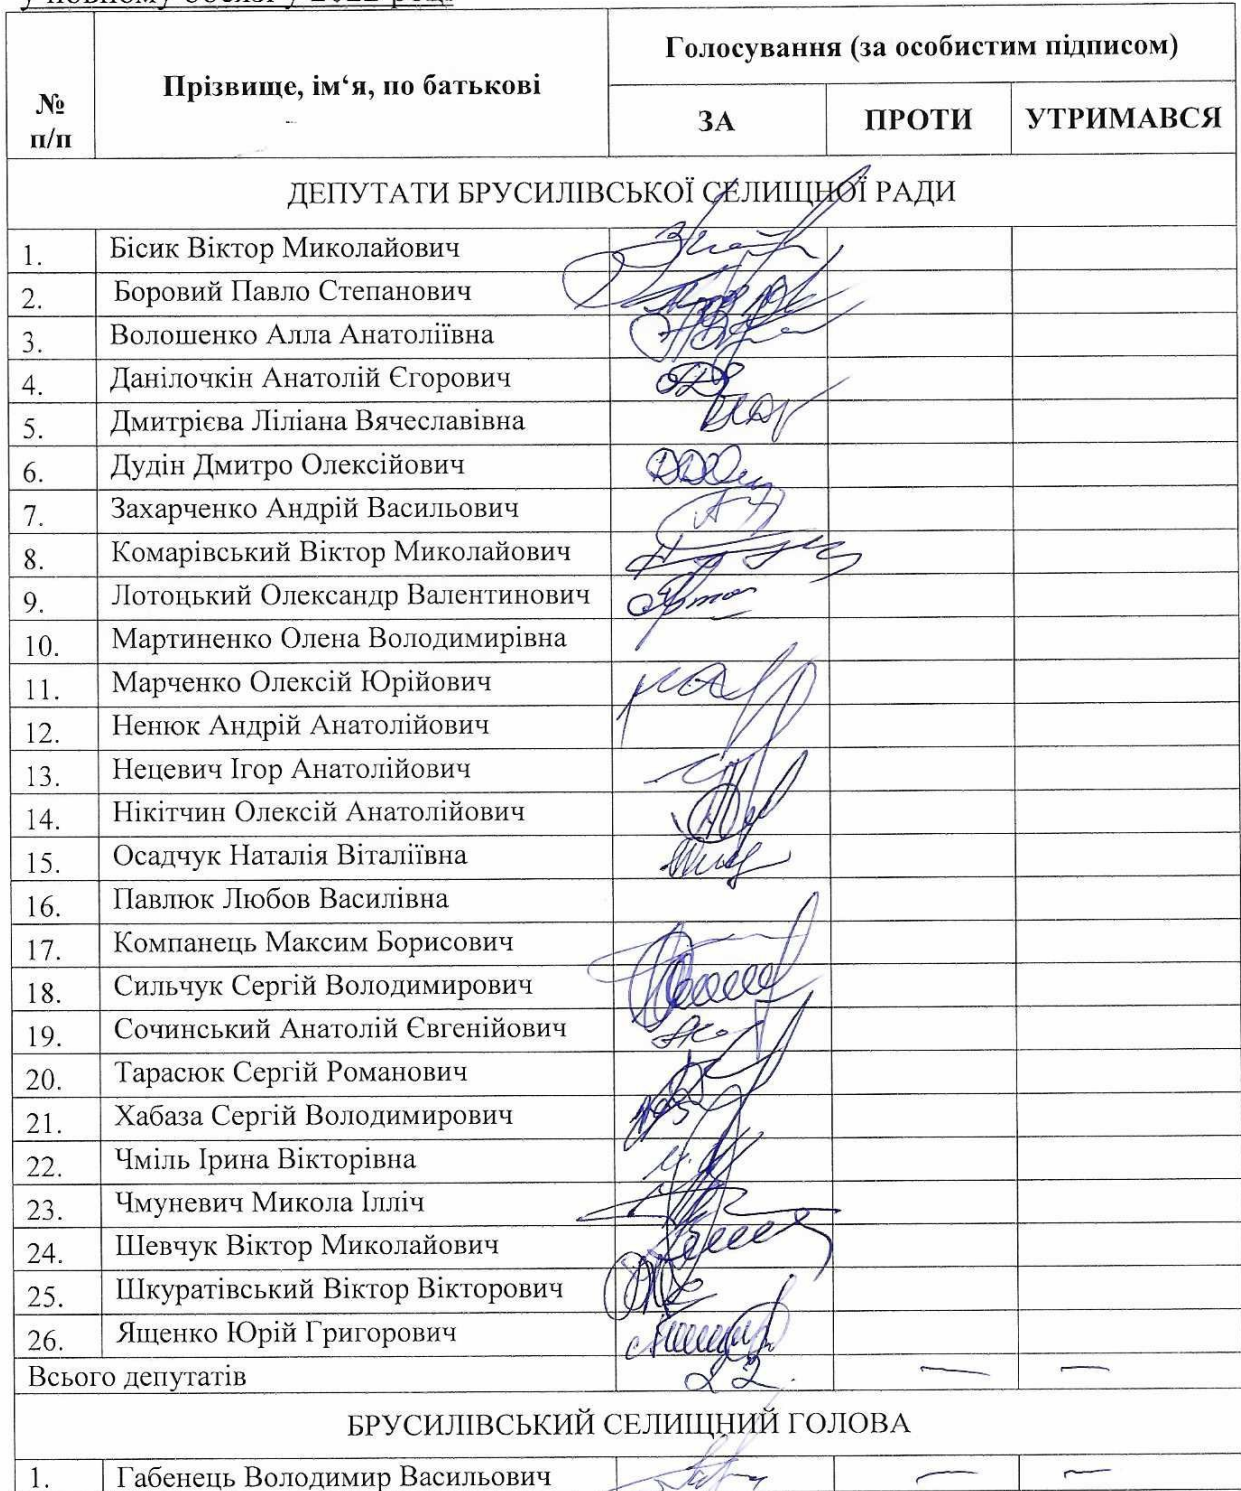 у повному обсязі у 2022 році
№ п/п
Прізвище, ім‘я, по батькові
Голосування (за особистим підписом)
ЗА
ПРОТИ
УТРИМАВСЯ
ДЕПУТАТИ БРУСИЛІВСЬКОЇ СЕЛИЩНОЇ РАДИ
1. Бісик Віктор Миколайович
2. Боровий Павло Степанович
3. Волошенко Алла Анатоліївна
4. Данілочкін Анатолій Єгорович
5. Дмитрієва Ліліана Вячеславівна
6. Дудін Дмитро Олексійович
7. Захарченко Андрій Васильович
8. Комарівський Віктор Миколайович
9. Лотоцький Олександр Валентинович
10. Мартиненко Олена Володимирівна
11. Марченко Олексій Юрійович
12. Ненюк Андрій Анатолійович
13. Нецевич Ігор Анатолійович
14. Нікітчин Олексій Анатолійович
15. Осадчук Наталія Віталіївна
16. Павлюк Любов Василівна
17. Компанець Максим Борисович
18. Сильчук Сергій Володимирович
19. Сочинський Анатолій Євгенійович
20. Тарасюк Сергій Романович
21. Хабаза Сергій Володимирович
22. Чміль Ірина Вікторівна
23. Чмуневич Микола Ілліч
24. Шевчук Віктор Миколайович
25. Шкуратівський Віктор Вікторович
26. Ященко Юрій Григорович
Всього депутатів 22. — —
БРУСИЛІВСЬКИЙ СЕЛИЩНИЙ ГОЛОВА
1. Габенець Володимир Васильович — —